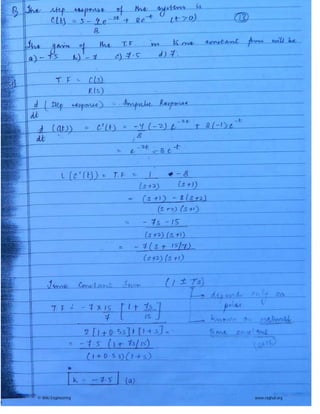 The step response of the system is
C(t) = 5 - e^-2t + 8e^-t (t>0)
The gain of the T.F in time constant form will be
a) -7.5 b) -7 c) 7.5 d) 7.
T.F = C(s)
R(s)
d (step response) = Impulse Response
dt
d (c(t)) = c'(t) = (-2) e^-2t + 8(-1)e^-t
dt
= e^-2t - 8e^-t
L(c'(t)) = T.F = 1 - 8
(s+2) (s+1)
= (s+1) - 8(s+2)
(s+2)(s+1)
= -7s - 15
(s+2)(s+1)
= -7(s + 15/7)
(s+2)(s+1)
Time Constant form (1 ± Ts)
depends only on
poles
T.F = -7 x 15 [1 + 7s]
7 15
known as
2[1+0.5s][1+s]
time constant
= -7.5 (1 + 7s/15)
(1+0.5s)(1+s)
k = -7.5 (a)
© Wiki Engineering
www.raghul.org